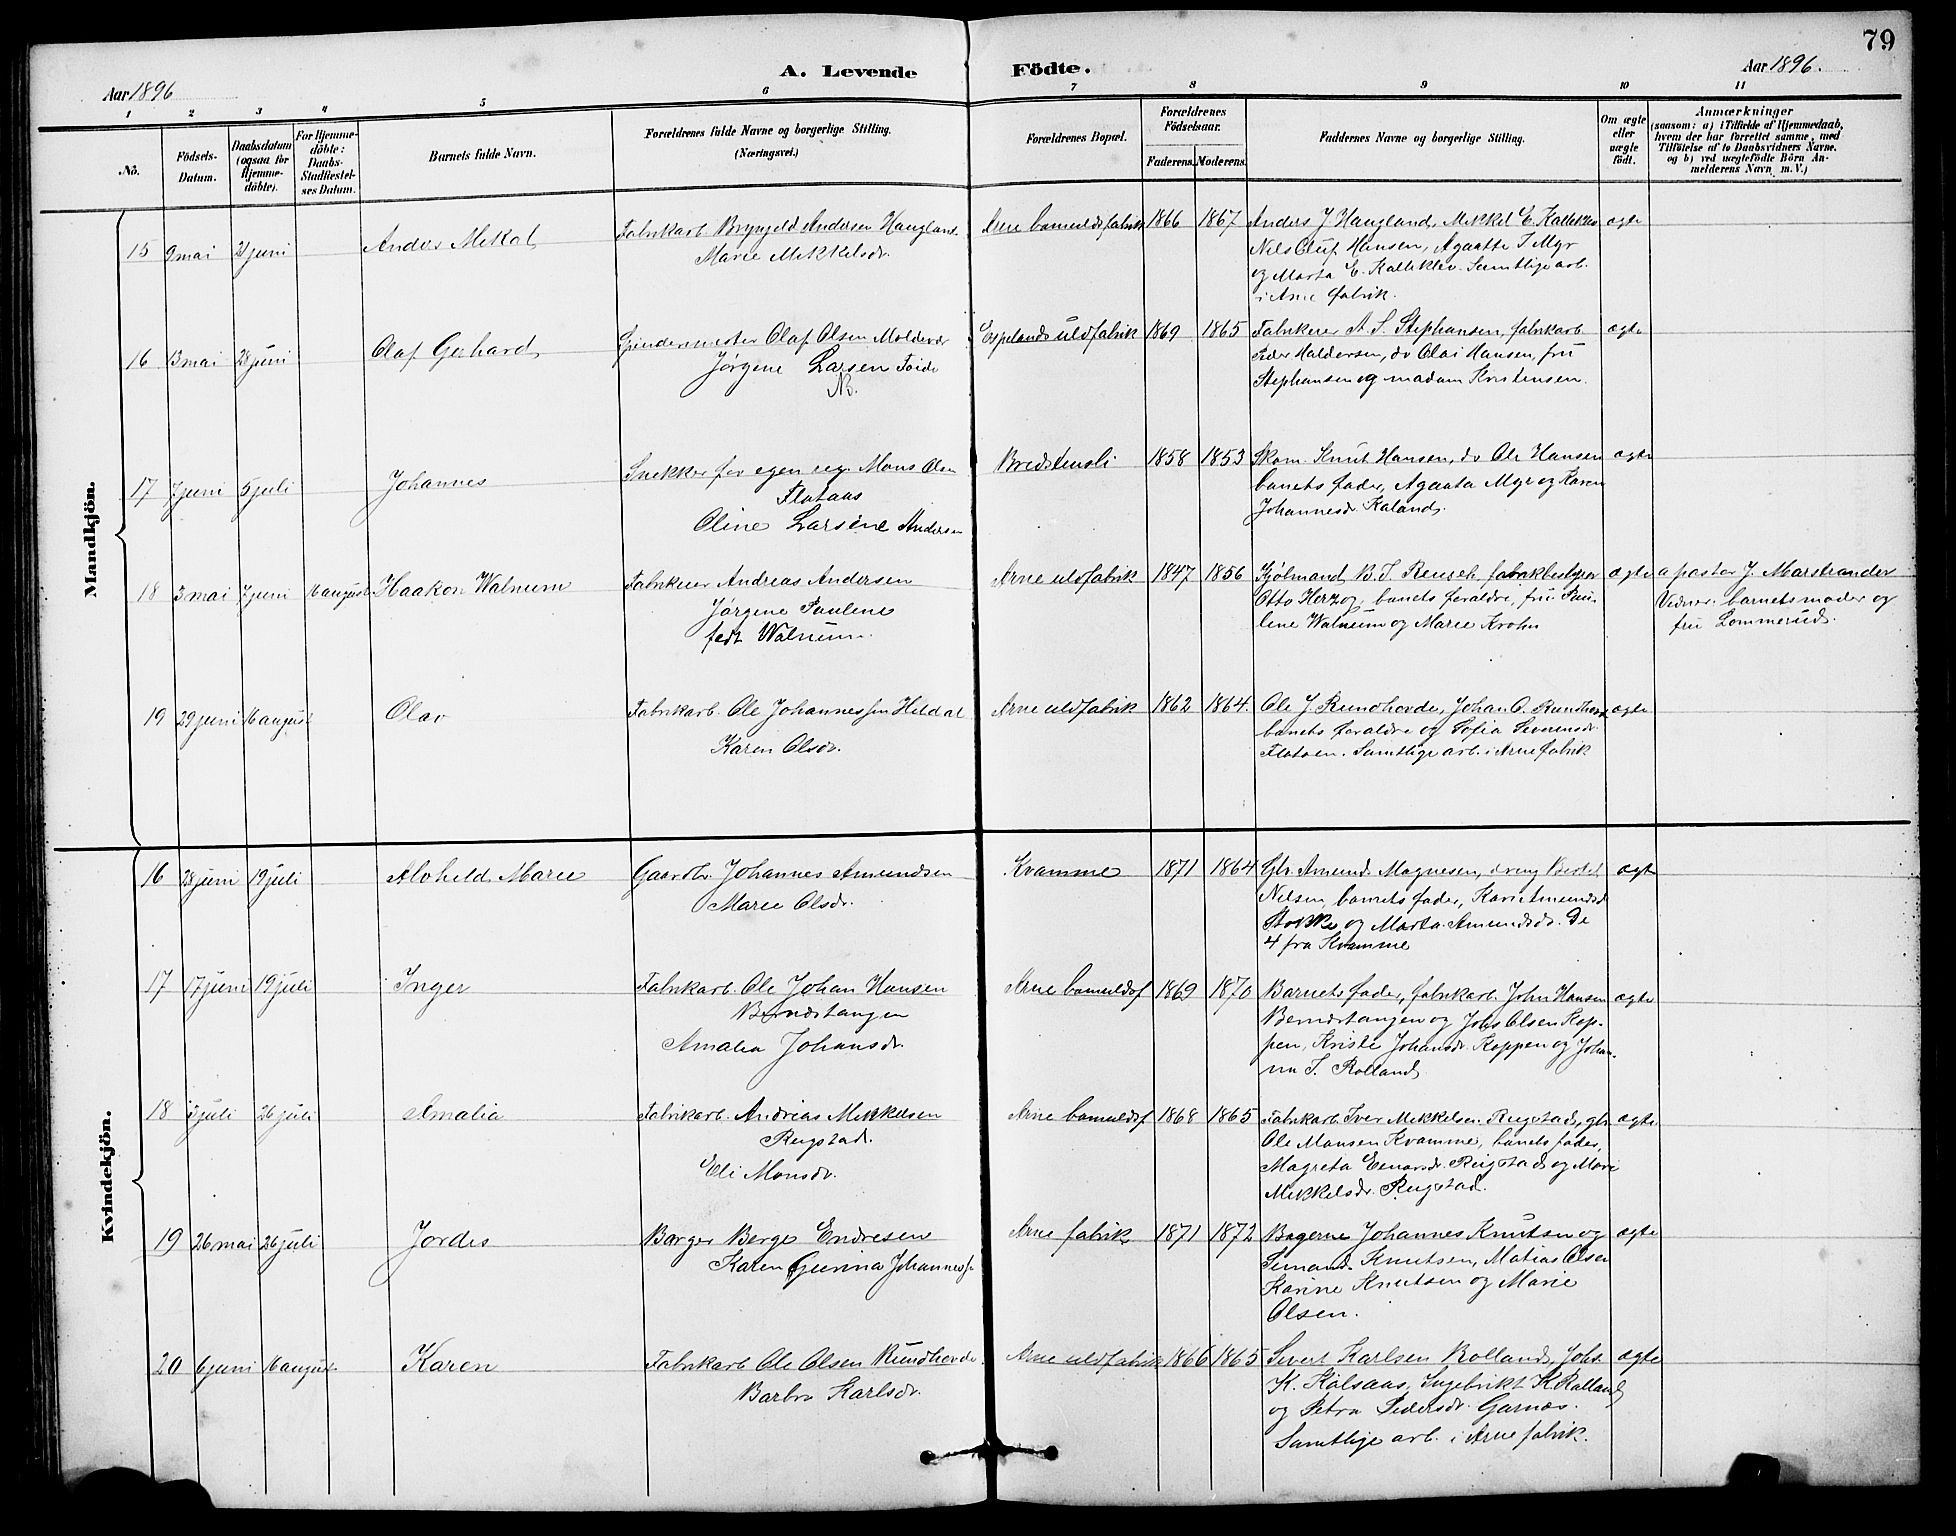 79
A. Levende Födte.
Aar 1896
Aar 1896.
1 2 3 4 5 6 7 8 9 10 11
No.
Födsels-Datum.
Daabsdatum (ogsaa for Hjemme-döbte).
For Hjemme-döbte: Daabs-Stadfæstelses Datum.
Barnets fulde Navn.
Forældrenes fulde Navne og borgerlige Stilling.
(Næringsvei.)
Forældrenes Bopæl.
Forældrenes Födselsaar.
Faderens. Moderens.
Faddernes Navne og borgerlige Stilling.
Om ægte eller uægte födt.
Anmærkninger
(saasom: a) i Tilfælde af Hjemmedaab,
hvem der har forrettet samme, med
Tilföielse af to Daabsvidners Navne,
og b) ved uægtefödte Börn An-
melderens Navn m. V.)
Mandkjön.
15 9 mai 21 juni Anders Mikal Fabrikarb. Brynjeld Andersen Haugland Arne bomuldsfabrik 1866 1867 Anders J Haugland, Mikkel E. Kalleklev ægte
Marie Mikkelsdr. Nils Oluf Hansen, Agaatte J Myr
og Marta E. Kalleklev. Samtlige arb.
i Arne fabrik.
16 13 mai 28 juni Olaf Gerhard Spindemester Olaf Olsen Moldevær Espelands uldfabrik 1869 1865 Fabrikeier A. S. Stephansen, fabrikarb. ægte
Jørgene Larsen Peder Haldorsen, do Olai Hansen, fru
Stephansen og madam Kristensen.
17 7 juni 5 juli Johannes Snekker for egen regn. Mons Olsen Bredstensli 1858 1853 Skom. Knut Hansen, do Ole Hansen ægte
Flataas barnets fader, Agaata Myr og Karen
Oline Larsine Andersen Johannesdr. Kaland.
18 3 mai 7 juni 16 august Haakon Walnum Fabrikeier Andreas Andersen Arne uldfabrik 1847 1856 Kjøbmand B. T. Reusch, fabrikbestyrer ægte a pastor J. Marstrander
Jørgene Pauline Otto Herzog, barnets forældre, fru Pau- Vidner: barnets moder og
født Walnum. line Walnum og Marie Krohn fru Lommerud.
19 29 juni 16 august Olav Fabrikarb. Ole Johannessen Hildal Arne uldfabrik 1862 1864. Ole J Rundhovde, Johan O. Rundhovde ægte
Karen Olsdr. barnets forældre og Sofia Severinsdr.
Flatøen. Samtlige arb. i Arne fabrik
Kvindekjön.
16 28 juni 19 juli Alvhild Marie Gaardbr. Johannes Amundsen Kvamme 1871 1864 Gbr. Amund Magnesen, dreng Bertel ægte
Marie Olsdr. Nilsen, barnets fader, Kari Amundsd.
Stokke og Marta Amundsdr. De
4 fra Kvamme
17 17 juni 19 juli Inger Fabrikarb. Ole Johan Hansen Arne bomuldsf 1869 1870 Barnets fader, fabrikarb. John Hansen ægte
Berndstangen Berndstangen og Johs Olsen Kop-
Amalia Johansdr. pen, Kristi Johansdr. Koppen og Johan-
na I. Rolland
18 juli 26 juli Amalia Fabrikarb. Andreas Mikkelsen Arne bomuldsf 1868 1865 Fabrikarb. Iver Mikkelsen Reigstad, gbr ægte
Reigstad. Ole Monsen Kvamme, barnets fader,
Eli Monsdr. Magreta Einarsdr. Reigstad og Mari
Mikkelsdr. Reigstad.
19 26 mai 26 juli Jordis Bager Berge Endresen Arne fabrik 1871 1872 Bagerne Johannes Knutsen og ægte
Karen Gurina Johannesd. Simand Knutsen, Matias Olsen
Karine Knutsen og Marie
Olsen.
20 6 juni 16 august Karen Fabrikarb Ole Olsen Rundhovde Arne uldfabrik 1866 1865 Sivert Karlsen Rolland, Johs. ægte
Barbro Karlsdr. K. Kolsaas, Ingebrikt K Rolland
og Petra Pedersdr. Garnæs.
Samtlige arb. i Arne fabrik.